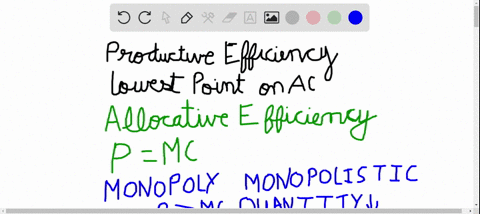 Productive Efficiency
lowest Point on AC
Allocative Efficiency
P = MC
MONOPOLY MONOPOLISTIC
MC QUANTITY↓